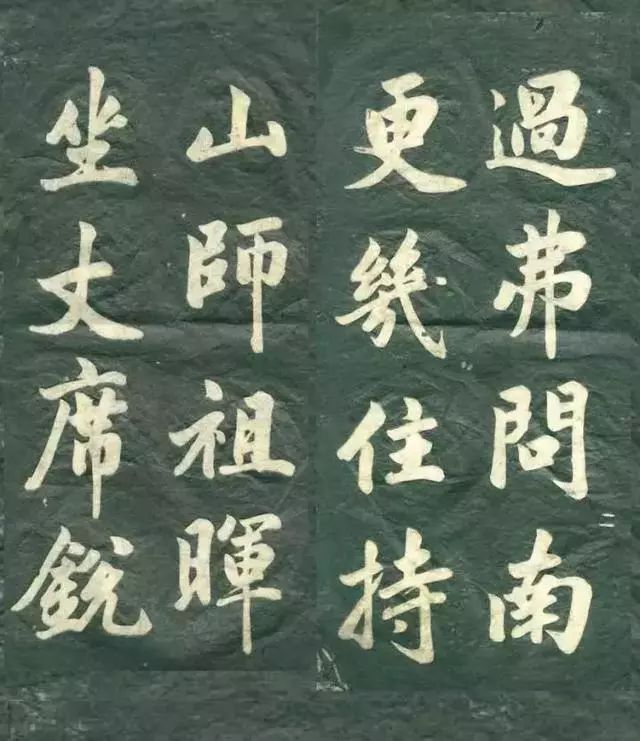 過弗問南
更幾住持
山師祖暉
坐丈席銳
二